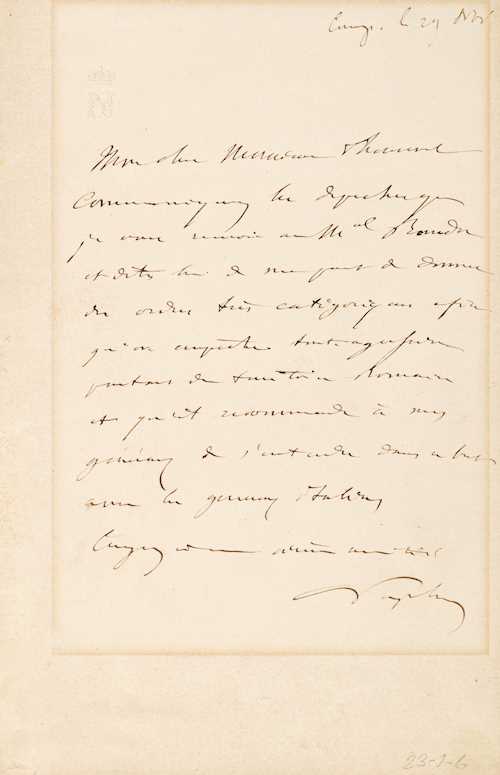 le 29
Mon cher Monsieur Thouvenel
Communiquez les dépêches que
je vous renvoie au Mal Randon
et dites lui de ma part de donner
des ordres très catégoriques afin
qu'on empêche toute agression
partant du territoire Romain
et qu'il recommande à mes
généraux de s'entendre dans ce but
avec les généraux Italiens
Croyez à ma sincère amitié
Napoléon
23-1-6